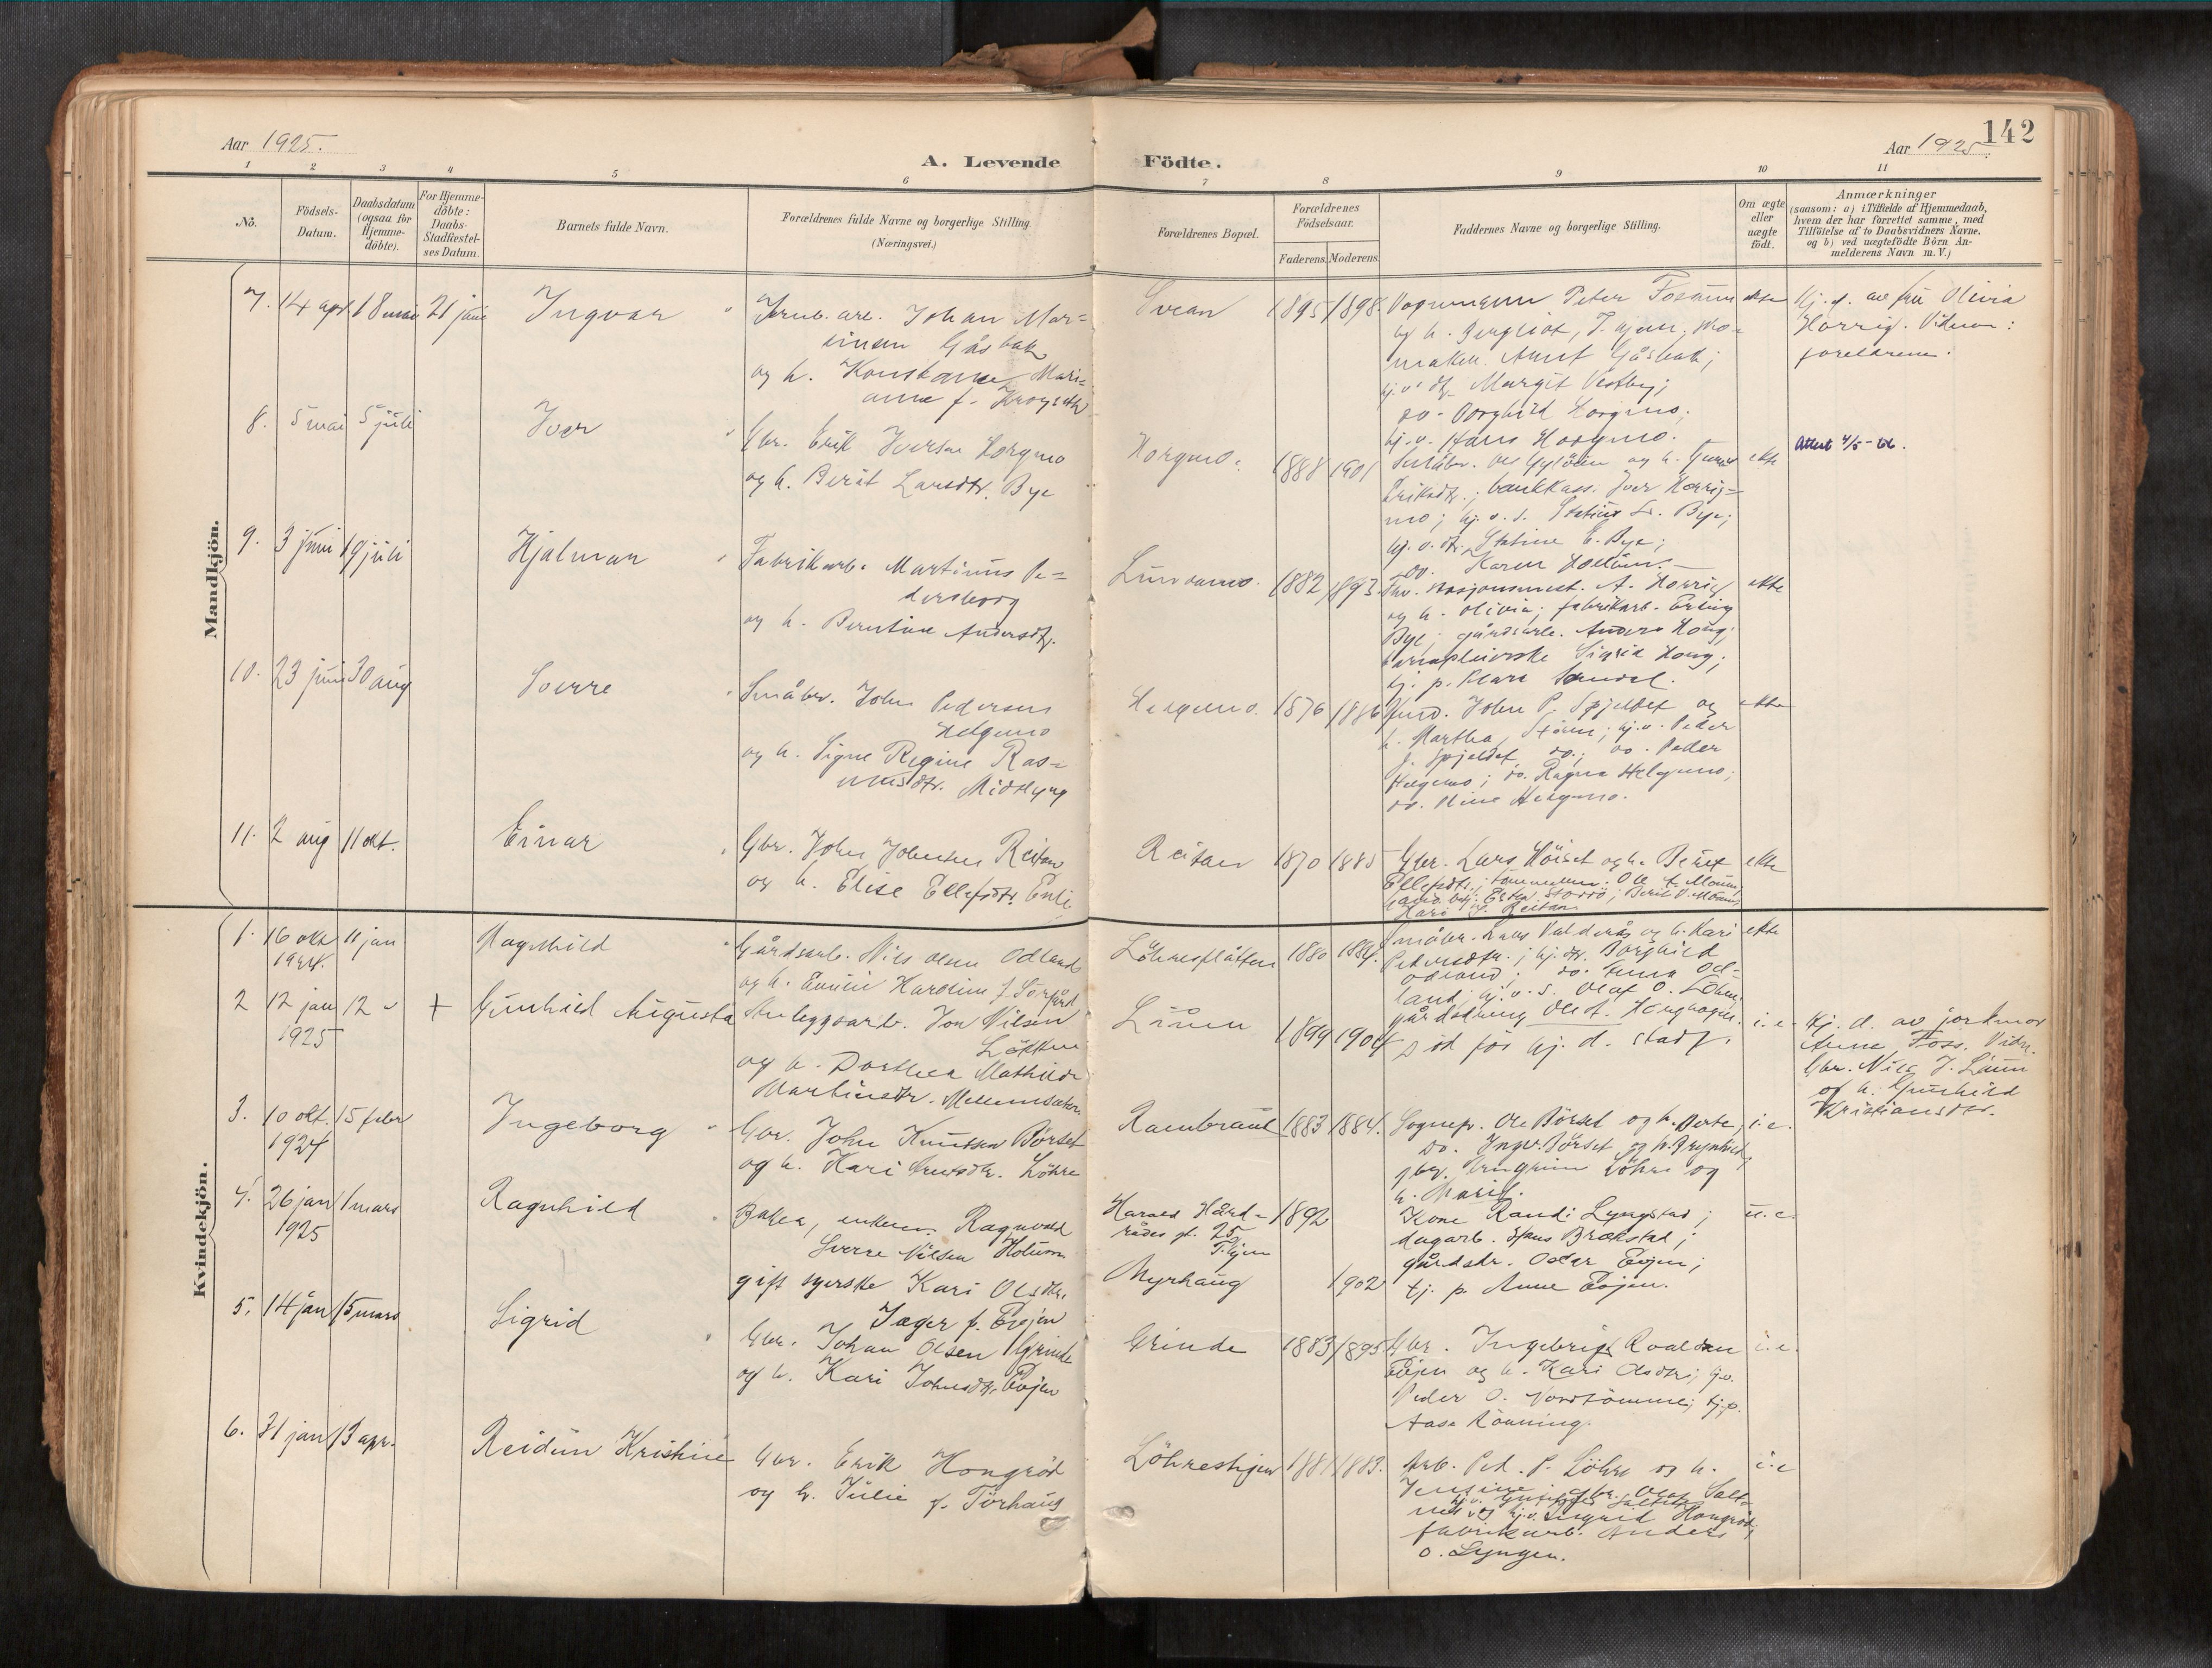 142
Aar 1925.
Aar 1925.
A. Levende
Födte.
1 2 3 4 5 6 7 8 9 10 11
No.
Födsels-
Datum.
Daabsdatum
(ogsaa for
Hjemme-
döbte).
For Hjemme-
döbte:
Daabs-
Stadfæstel-
ses Datum.
Barnets fulde Navn.
Forældrenes fulde Navne og borgerlige Stilling
(Næringsvei.)
Forældrenes Bopæl.
Forældrenes
Födselsaar.
Faderens. Moderens.
Faddernes Navne og borgerlige Stilling.
Om ægte
eller
uægte
födt.
Anmærkninger
(saasom: a) i Tilfælde af Hjemmedaab,
hvem der har forrettet samme, med
Tilföielse af to Daabsvidners Navne.
og b) ved uægtefödte Börn An-
melderens Navn m.V.)
Mandkjön.
7. 14 apr 18 mai 21 juni Ingvar
Jernb. arb. Johan Mar=
insen Gåsbak
og h. Konstanse Mari=
anne f. Krogseth
Soran 1895 1898.
Peter Fossum
og h. Bergliot, T.hjem;
Gåsbak;
Margit Vestby;
do. Borghild Horgmo;
hj.v. Hans Horgmo.
ekte
Hj. d. av fru Olivia
Horrig. Vidner:
foreldrene.
8. 5 mai 5 juli Iver
Gbr. Erik Iversen Horgmo
og h. Berit Larsdtr. Bye
Horgmo. 1888 1901
Småbr. Ole og h.
Eriksdtr.; bankkass. Iver Horrig=
mo; hj.v.s. Bye;
hj.v. dtr. Statine E. Bye;
do. Karen
ekte
Attest 4/5-66.
9. 3 juni 19 juli Hjalmar
Fabrikarb. Martinus Pe=
dersborg
og h. Berntine Andersdtr.
Lundamo. 1882 1893.
stasjonsmest. A. Horrig
og h. Olivia; fabrikarb. Erling
Bye; gårdsarb. Anders Hong;
Sigrid Hong;
tj. p. Klara
ekte
10. 23 juni 30 aug Sverre
Småbr. John Pedersen
Helgemo
og h. Signe Regine Ras=
musdtr. Midtlyng
Helgemo. 1876 1886
John P. Spjeldet og
h. Martha, Stören; hj.v. Peder
J. Spjeldet, do.; do. Peder
Helgemo; do. Ragna Helgemo;
do. Helgemo.
ekte
11. 2 aug 11 okt. Einar
Gbr. John Johnsen Reitan
og h. Elise Ellefsdtr. Enli
Reitan 1870 1885
Gbr. Lars Höiset og h. Beret
Ellefsdtr.; Ole
Storrö; Berit
Kari J. Reitan
ekte
Kvindekjön.
1. 16 okt 11 jan Magnhild
1924.
Gårdsarb. Nils Olsen Odland
og h. Emilie Karoline f. Sörgård
Löhresflåtten 1880 1884.
Småbr. Lars Valdarås og h. Kari
Pedersdtr.; hj. dtr. Borghild
Odland; do. Anna Od=
land; hj.v.s. Olaf O. Löhre;
gårdsdreng Ole A.
ekte
2 12 jan 12 " + Gunhild Augusta
1925
Anleggsarb. Jon Nilsen
Løkken
og h. Dorthea Mathilde
Martinsdtr.
Liåen 1899 1904
Död før hj. d. stadf.
i.e.
Hj. d. av jordmor
Anna Foss. Vidn.
Gbr. Nils J. Liåen
og h. Gunhild
Kristiansdtr.
3. 10 okt. 15 febr Ingeborg
1924
Gbr. John Knutsen Börset
og h. Kari Arnsdtr. Löhre
Rambraut 1883 1884.
Sognepr. Ole Börset og h. Berte;
do. Ingv. Börset og h. Brynhild;
gbr. Löhre og
h. Marit.
i.e.
4. 26 jan 1 mars Ragnhild
1925
Baker, enkem. Ragnvald
Sverre Nilsen Holum
gift syerske Kari Olsdtr.
Jæger f. Evjen
Harald Hård=
rådes gt. 25
T.hjem
Myrhaug
1892
1902
Kone Randi Lyngstad;
dagarb. Hans Brækstad;
gårdsbr. Oskar Evjen;
tj. p. Anne Evjen.
u.e.
5. 14 jan 15 mars Sigrid
Gbr. Johan Olsen Grinde
og h. Kari Johnsdtr. Evjen
Grinde 1883 1895
Gbr. Ingebrigt Roaldsen
Evjen og h. Kari Olsdtr.; hj.v.
Peder O. Nordtömme; tj.p.
Aasa Rönning.
i.e.
6. 31 jan 13 apr. Reidun Kristine
Gbr. Erik Hongröd
og h. Julie f. Törhaug
Löhreshjem 1881 1883.
Arb. Ped. P. Löhre og h.
Jensine; gbr. Olaf Salt=
nes og hj.v. Ingrid Hongröd;
fabrikarb. Anders
O. Lyngen.
i.e